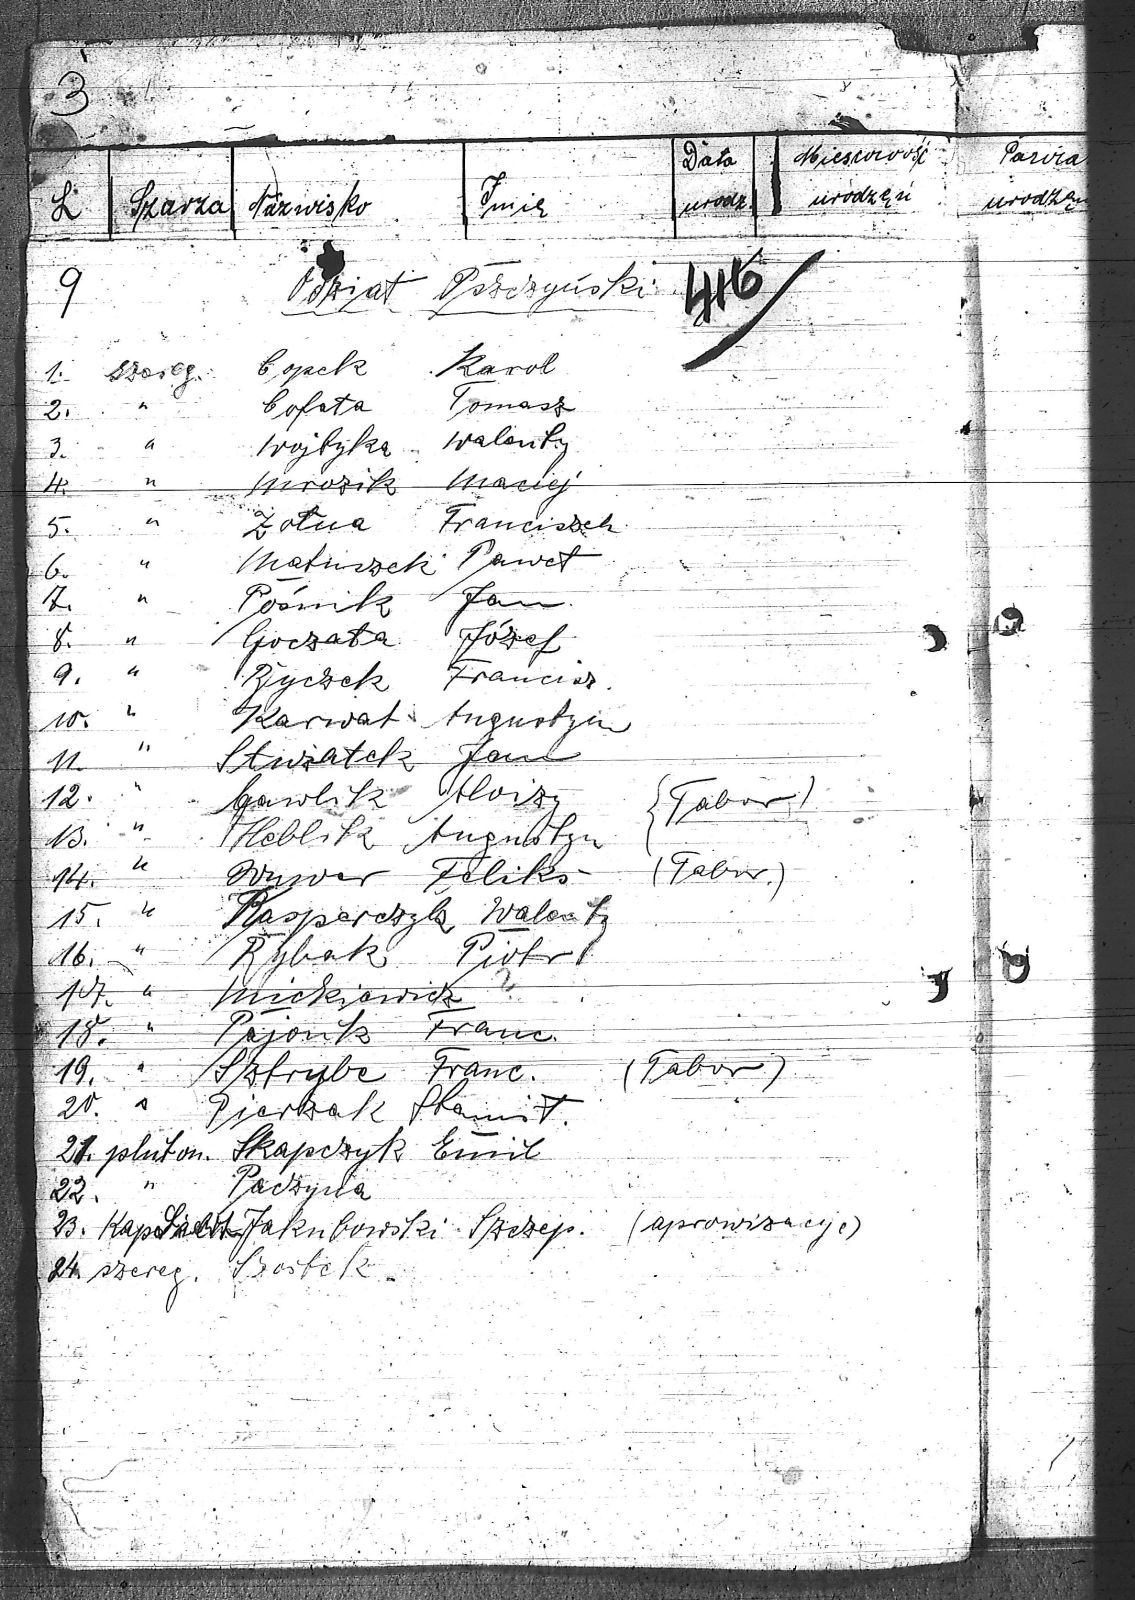 3
L Szarża Nazwisko Imię Data urodz. Miejscowość urodzeń Parcia urodzen
9 Odział Pszczyński 416
1. szereg. Copek Karol
2. " Cofała Tomasz
3. " Wojtyka Walenty
4. " Mrozik Maciej
5. " Żołna Franciszek
6. " Matuszek Paweł
7. " Pośnik Jan
8. " Goczała Józef
9. " Ryczek Francisz.
10. " Karwat Augustyn
11. " Stwiątek Jan
12. " Gawlik Aloizy (Tabor)
13. " Heblik Augustyn
14. " Feliks (Tabor.)
15. " Kasperczyk Walenty
16. " Rybak Piotr
17. " Mickiewicz ?
18. " Pajonk Franc.
19. " Sztrybe Franc. (Tabor)
20. " Pierzak Stanisł.
21. pluton. Skapczyk Emil
22. " Padzyna
23. Kap Jakubowski Szczep. (aprowizacyje)
24. szereg. Szostek